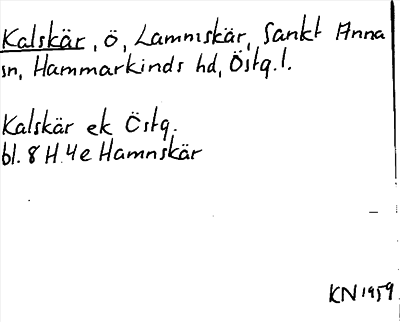 Kalskär, ö, Lammskär, Sankt Anna
sn, Hammarkinds hd, Östg. l.
Kalskär ek Östg.
bl. 8 H. 4e Hamnskär
KN 1959